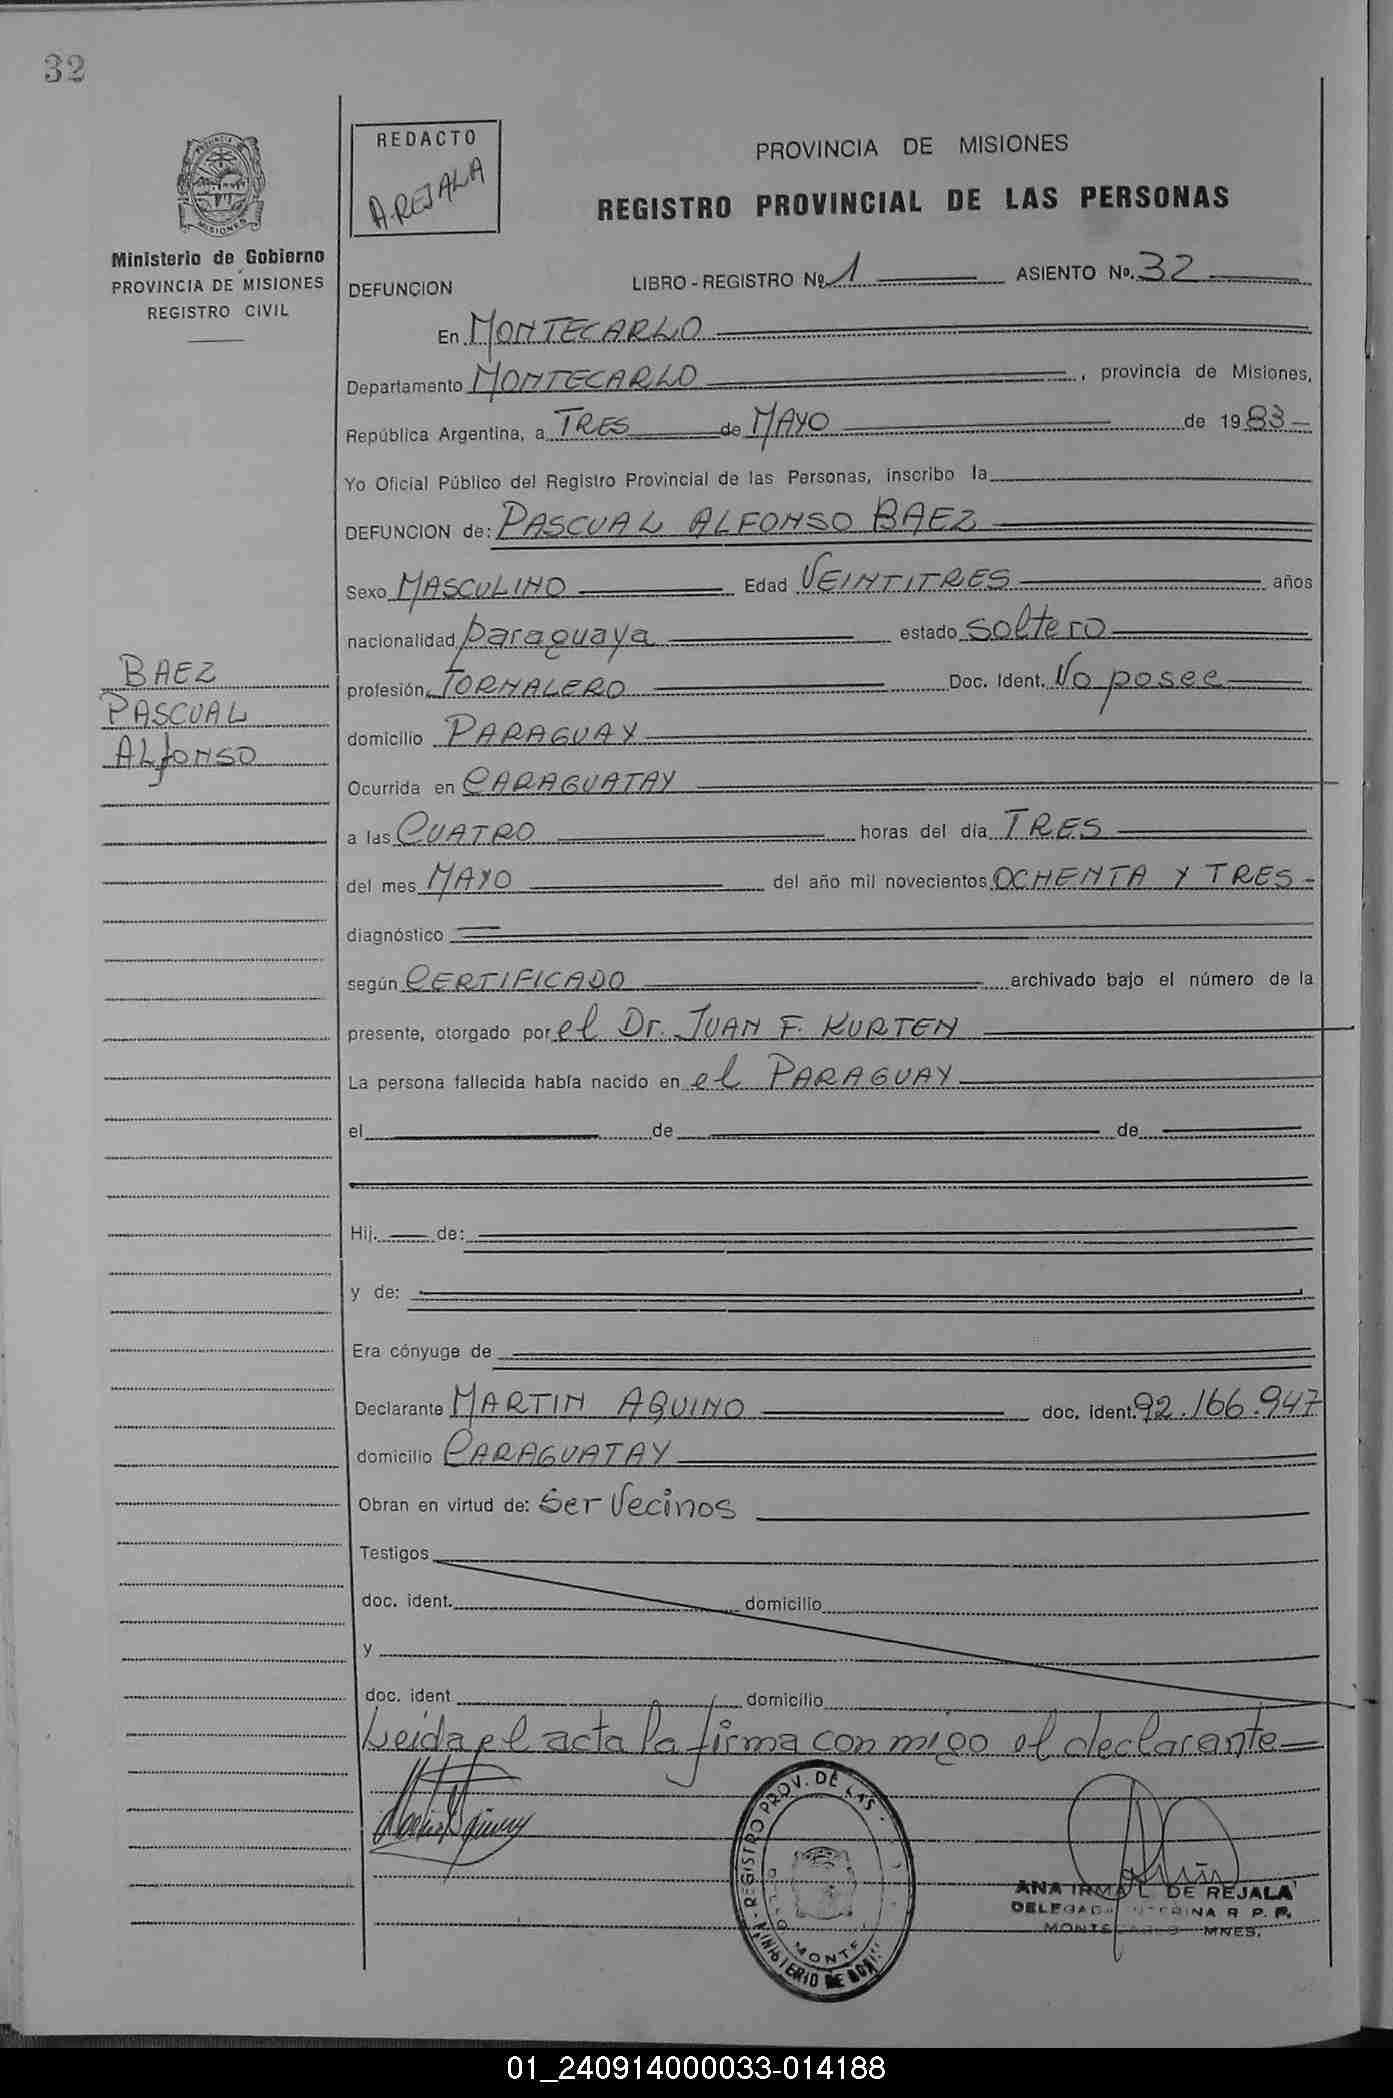 32
REDACTO
A. REJALA
PROVINCIA DE MISIONES
REGISTRO PROVINCIAL DE LAS PERSONAS
PROVINCIA DE
MISIONES
Ministerio de Gobierno
PROVINCIA DE MISIONES
REGISTRO CIVIL
DEFUNCION LIBRO - REGISTRO Nº 1 ASIENTO Nº. 32
En MONTECARLO
Departamento MONTECARLO, provincia de Misiones,
República Argentina, a TRES de MAYO de 1983
Yo Oficial Público del Registro Provincial de las Personas, inscribo la
DEFUNCION de: PASCUAL ALFONSO BAEZ
Sexo MASCULINO Edad VEINTITRES años
nacionalidad paraguaya estado soltero
BAEZ
PASCUAL
ALfONSO
profesión JORNALERO Doc. Ident. No posee
domicilio PARAGUAY
Ocurrida en CARAGUATAY
a las CUATRO horas del día TRES
del mes MAYO del año mil novecientos OCHENTA Y TRES -
diagnóstico
según CERTIFICADO archivado bajo el número de la
presente, otorgado por el Dr. JUAN F. KURTEN
La persona fallecida había nacido en el PARAGUAY
el de de
Hij. de:
y de:
Era cónyuge de
Declarante MARTIN AQUINO doc. ident. 92.166.947
domicilio CARAGUATAY
Obran en virtud de: Ser Vecinos
Testigos
doc. ident. domicilio
y
doc. ident domicilio
Leida el acta la firma con migo el declarante
REGISTRO PROV. DE LAS
MONTE
MINISTERIO DE GOB
ANA IRMA L. DE REJALA
DELEGADA INTERINA R. P. P.
MONTECARLO MNES.
01_240914000033-014188